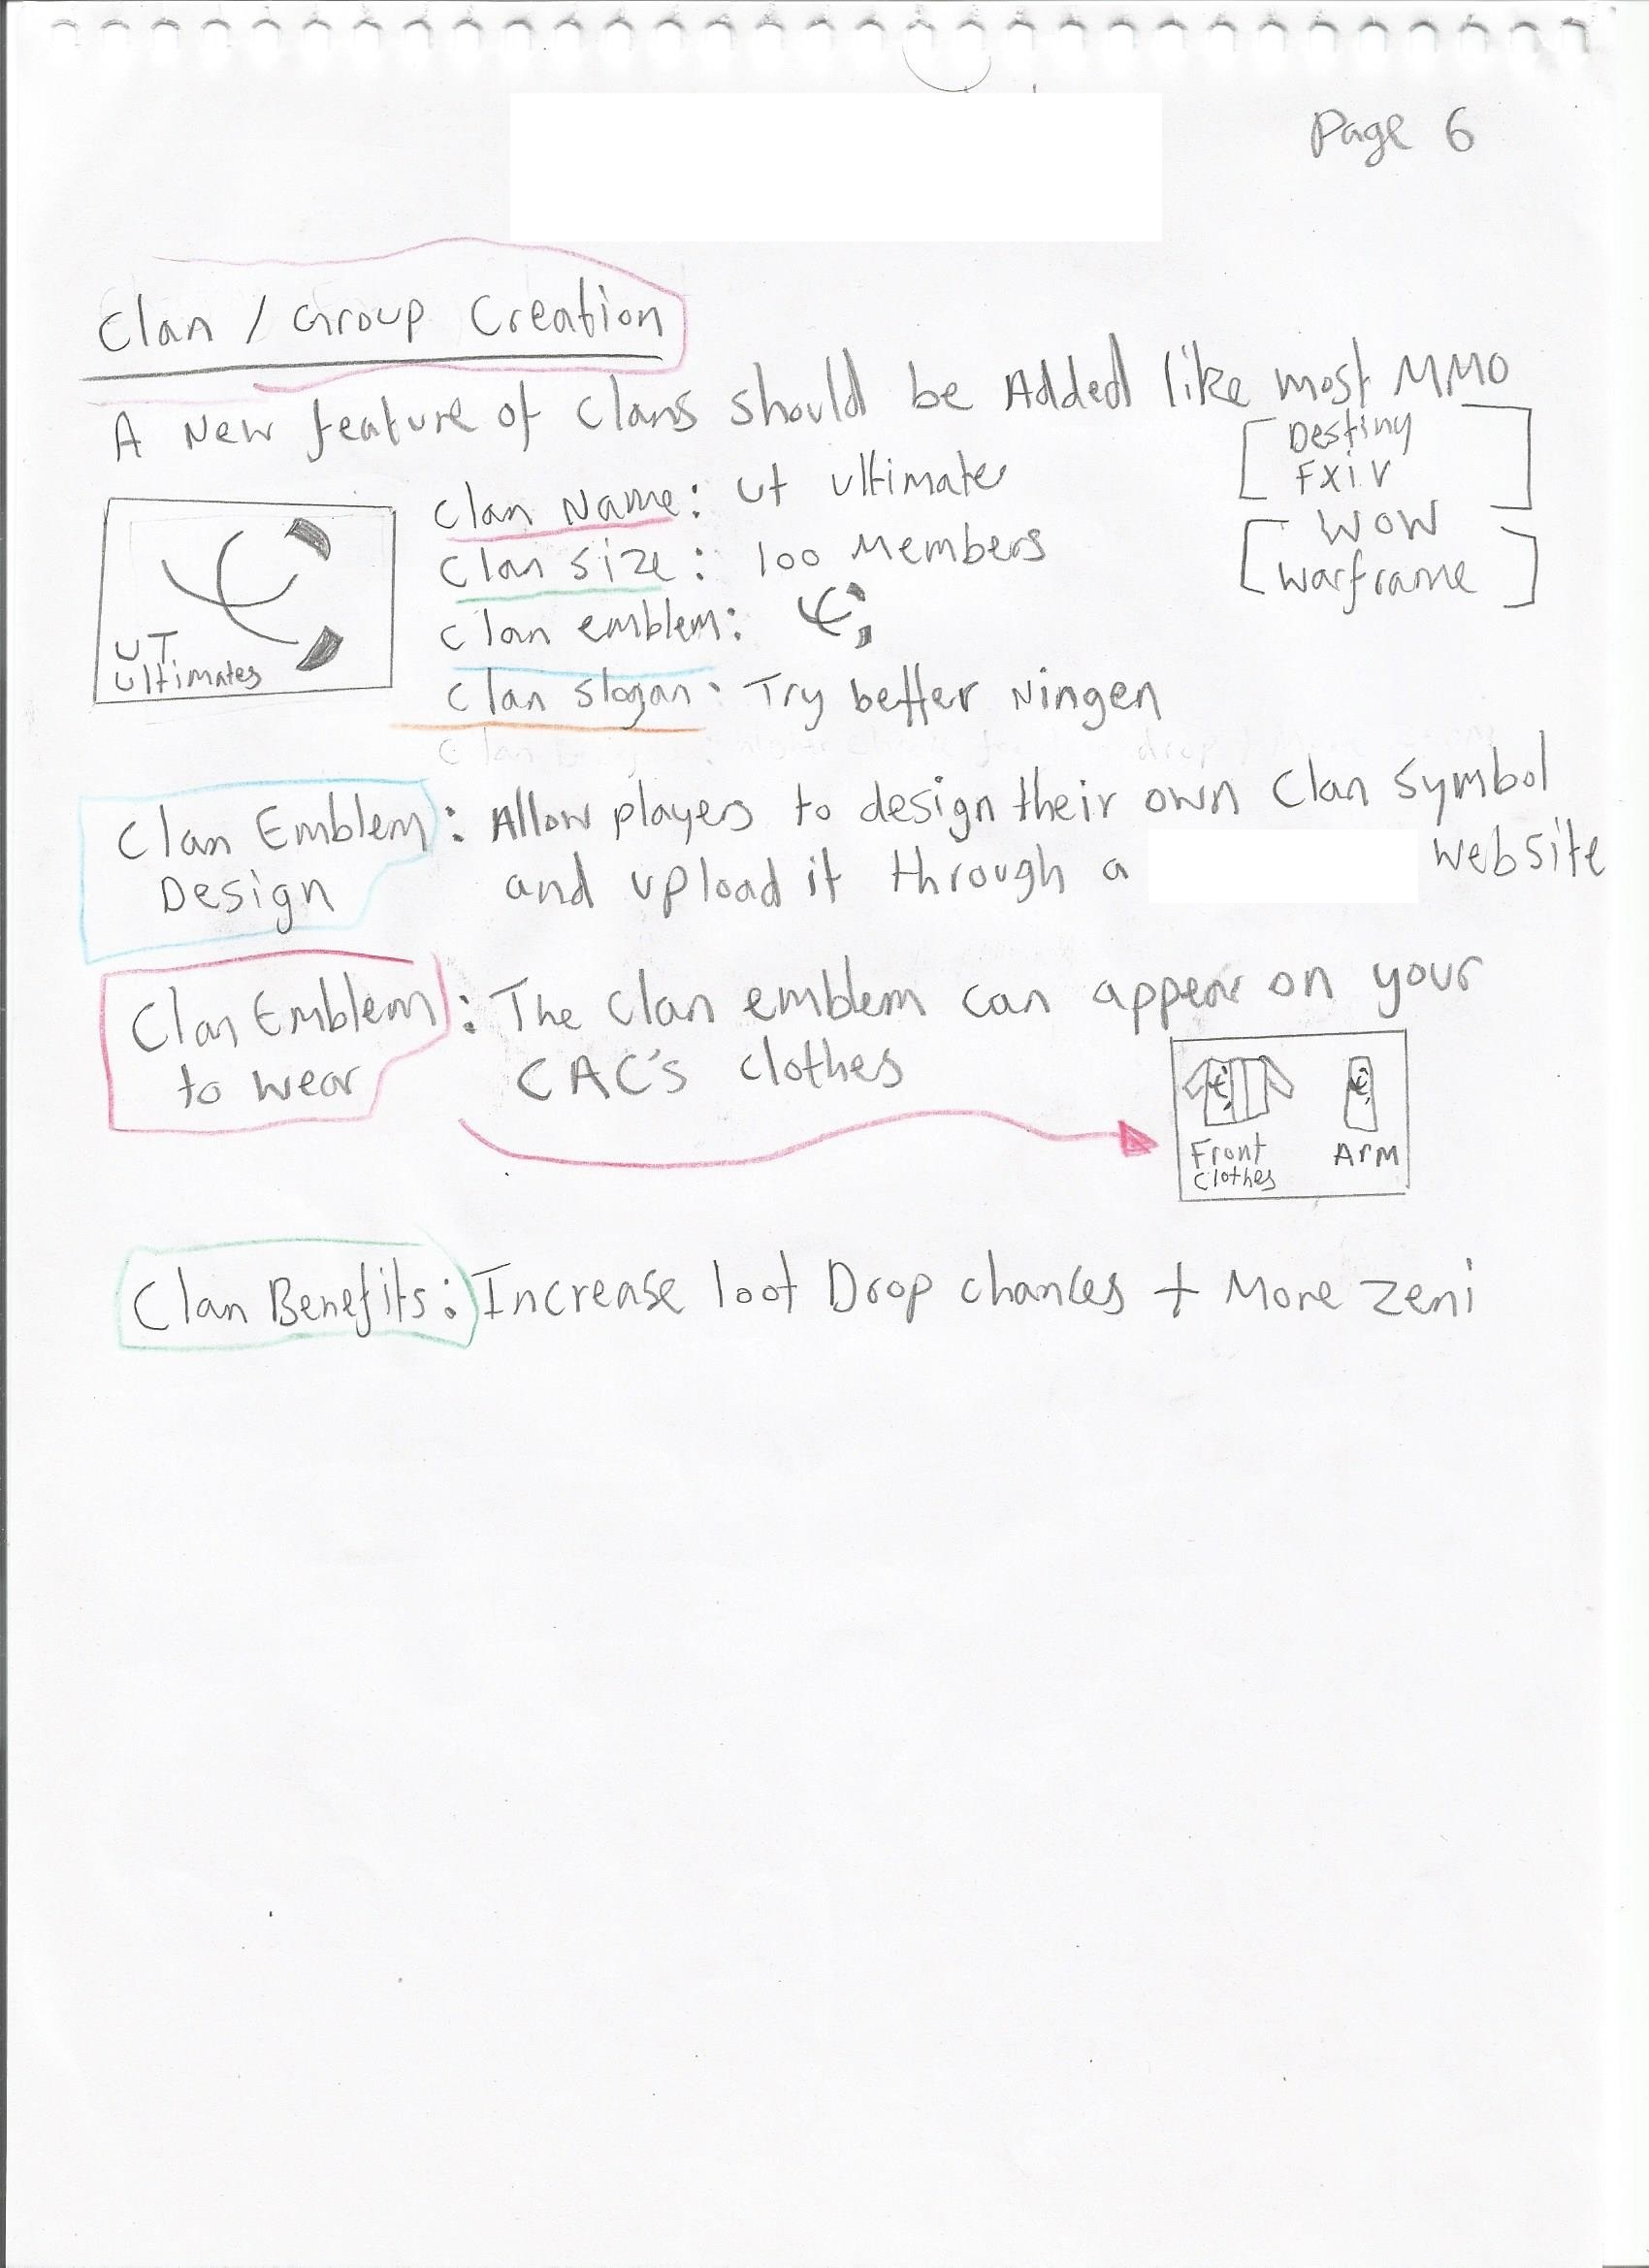 Page 6
Clan / Group Creation
A New feature of Clans should be Added like most MMO
Destiny
FXIV
WOW
Warframe
UT
Ultimates
Clan Name: UT Ultimates
Clan Size: 100 Members
Clan emblem:
Clan slogan: Try better Ningen
Clan Emblem
Design
: Allow players to design their own Clan Symbol
and upload it through a website
Clan Emblem
to wear
: The Clan emblem can appear on your
CAC's clothes
Front
Clothes
Arm
Clan Benefits: Increase loot Drop chances + More Zeni